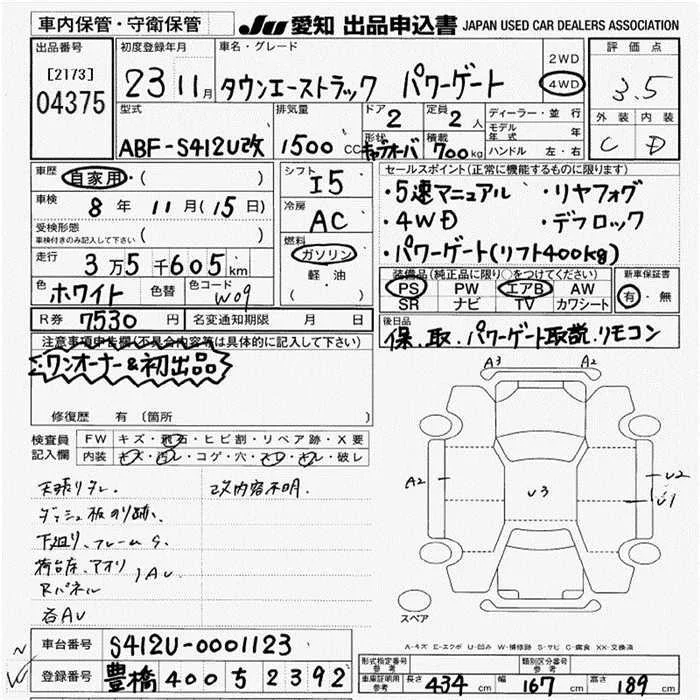 車内保管・守衛保管 JU 愛知 出品申込書 JAPAN USED CAR DEALERS ASSOCIATION
出品番号 [2173] 04375
初度登録年月 23 11月
車名・グレード タウンエーストラック パワーゲート
2WD 4WD
評価点 3.5
外装 内装 C D
型式 ABF-S412U改
排気量 1500 cc
ドア 2 定員 2人
形状 積載 700kg
ディーラー・並行
モデル年式 年
ハンドル 左・右
車歴 自家用・( )
車検 8年 11月(15日)
受検形態 車検付きのみ記入して下さい ( )
走行 3万5千605km
色 ホワイト 色替 色コード W09
R券 7530円 名変通知期限 月 日
シフト I5
冷房 AC
燃料 ガソリン 軽・油 ( )
セールスポイント(正常に機能するものに限ります)
・5速マニュアル ・リヤフォグ
・4WD ・デフロック
・パワーゲート(リフト400kg)
装備品(純正品に限り○をつけてください)
PS PW エアB AW
SR ナビ TV カワシート
新車保証書 有・無
後日品 保、取、パワーゲート取説、リモコン
注意事項申告欄(不具合内容等は具体的に記入して下さい)
ワンオーナー&初出品
修復歴 有 (箇所 )
検査員記入欄 FW キズ・飛石・ヒビ割・リペア跡・X要
内装 キズ・汚レ・コゲ・穴・スレ・キレ・破レ
天張りタレ、 改内容不明、
ダッシュ板のり跡、
下廻り、フレームS、
荷台床、アオリ
Rパネル
各AU
A3 A2
A2 U3 U2
U1
スペア
A-キズ E-エクボ U-凹み W-補修跡 S-サビ C-腐食 XX-交換済
車台番号 S412U-0001123
登録番号 豊橋 400 ち 2392
形式指定番号 参考 類別区分番号 参考
車庫証明用参考 長さ 434cm 幅 167cm 高さ 189cm